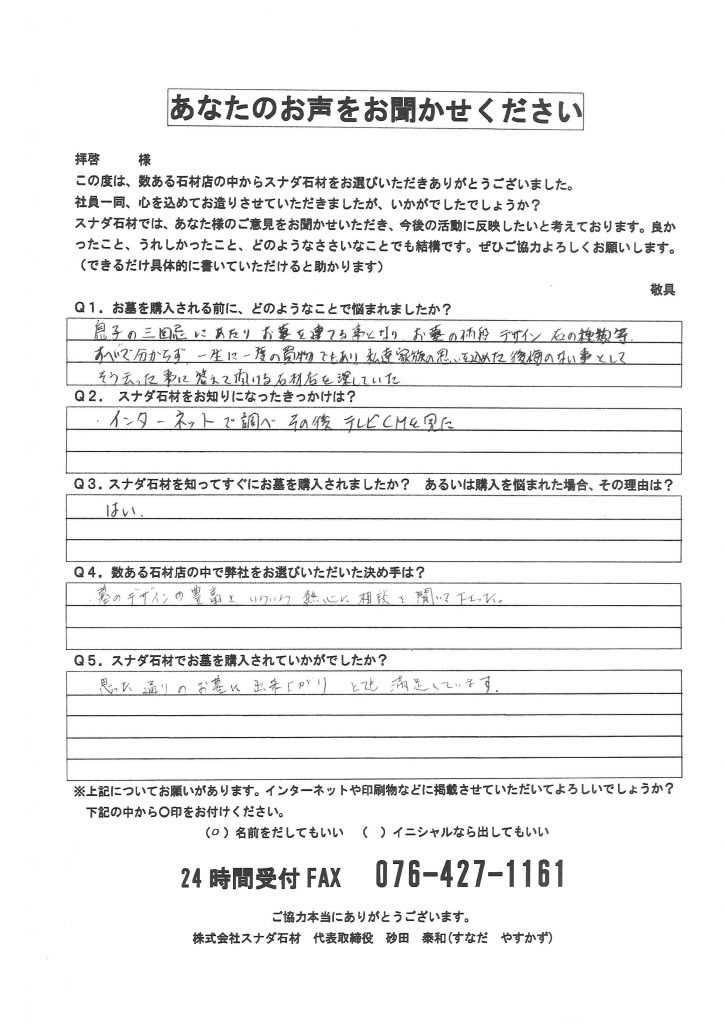 あなたのお声をお聞かせください
拝啓　　様
この度は、数ある石材店の中からスナダ石材をお選びいただきありがとうございました。
社員一同、心を込めてお造りさせていただきましたが、いかがでしたでしょうか？
スナダ石材では、あなた様のご意見をお聞かせいただき、今後の活動に反映したいと考えております。良か
ったこと、うれしかったこと、どのようなささいなことでも結構です。ぜひご協力よろしくお願いします。
（できるだけ具体的に書いていただけると助かります）
敬具
Ｑ１．お墓を購入される前に、どのようなことで悩まれましたか？
息子の三回忌にあたり お墓を建てる事となり お墓の値段 デザイン 石の種類等.
すべて分からず 一生に一度の買物でもあり 私達家族の思いを込めた 後悔のない事として
そう云った事に答えて頂ける石材店を探していた
Ｑ２．スナダ石材をお知りになったきっかけは？
・インターネットで調べ その後 テレビCMを見た
Ｑ３．スナダ石材を知ってすぐにお墓を購入されましたか？　あるいは購入を悩まれた場合、その理由は？
はい.
Ｑ４．数ある石材店の中で弊社をお選びいただいた決め手は？
・墓のデザインの豊富と いろいろ 熱心に 相談を 聞いて下さった。
Ｑ５．スナダ石材でお墓を購入されていかがでしたか？
思った通りのお墓に 出来上がり とても 満足しています.
※上記についてお願いがあります。インターネットや印刷物などに掲載させていただいてよろしいでしょうか？
下記の中から○印をお付けください。
（○）名前をだしてもいい　（　）イニシャルなら出してもいい
24時間受付FAX　076-427-1161
ご協力本当にありがとうございます。
株式会社スナダ石材　代表取締役　砂田　泰和(すなだ　やすかず)